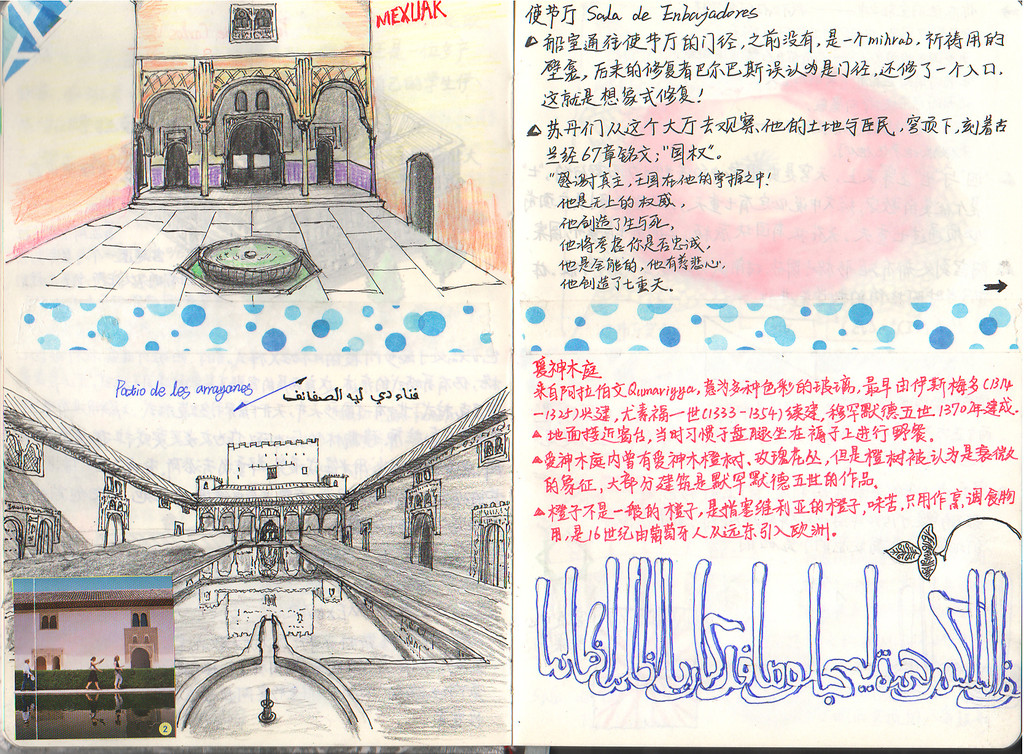 MEXUAR
Patio de los arrayanes
فناء دي ليه الصفائف
2
使节厅 Sala de Enbajadores
船室通往使节厅的门径，之前没有，是一个mihrab，祈祷用的
壁龛，后来的修复者巴尔巴斯误认为是门径，还修了一个入口，
这就是想象式修复！
苏丹们从这个大厅去观察，他的土地与臣民，穹顶下，刻着古
兰经67章铭文；"国权"。
"感谢真主，王国在他的掌握之中！
他是无上的权威，
他创造了生与死，
他将考捡你是否忠诚，
他是全能的，他有慈悲心，
他创造了七重天。
爱神木庭
来自阿拉伯文Qumariyya，意为多种色彩的玻璃，最早由伊斯梅多(1314
-1325)兴建，尤素福一世(1333-1354)续建，穆罕默德五世1370年建成.
地面接近窗台，当时习惯于盘腿坐在褥子上进行野餐。
爱神木庭内曾有爱神木橙树、玫瑰花丛，但是橙树被认为是衰微
的象征，大部分建筑是默罕默德五世的作品。
橙子不是一般的橙子，是指塞维利亚的橙子，味苦，只用作调食物
用，是16世纪由葡萄牙人从远东引入欧洲。